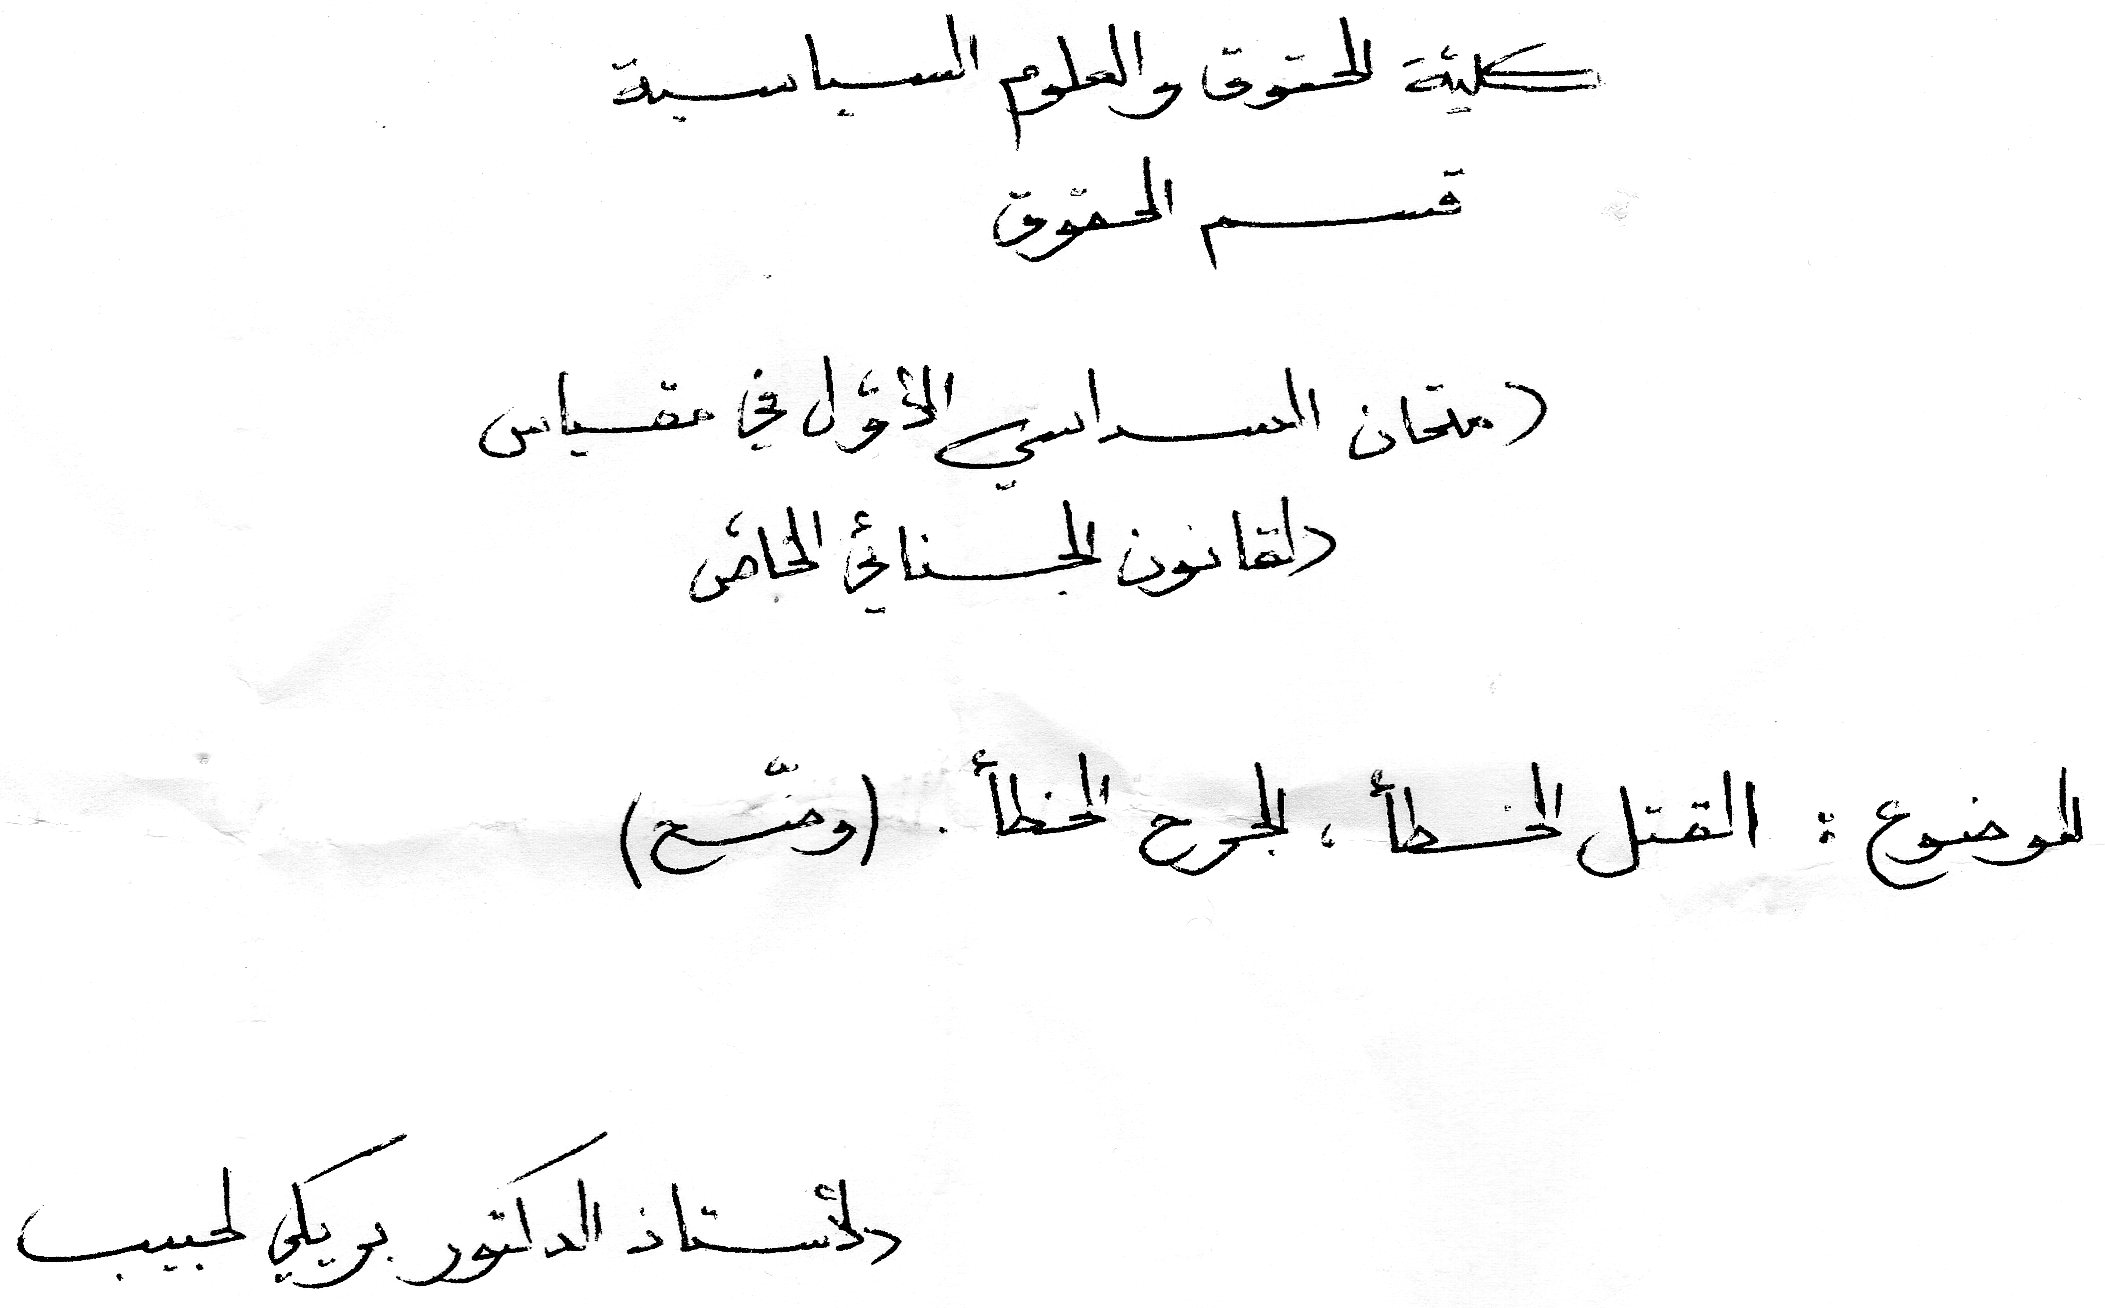 كليّة الحقوق والعلوم السياسية
قسم الحقوق
امتحان السداسي الأوّل في مقياس
القانون الجنائي الخاصّ
الموضوع : القتل الخطأ ، الجرح الخطأ . (وضّح)
الأستاذ الدكتور بريكي لحبيب